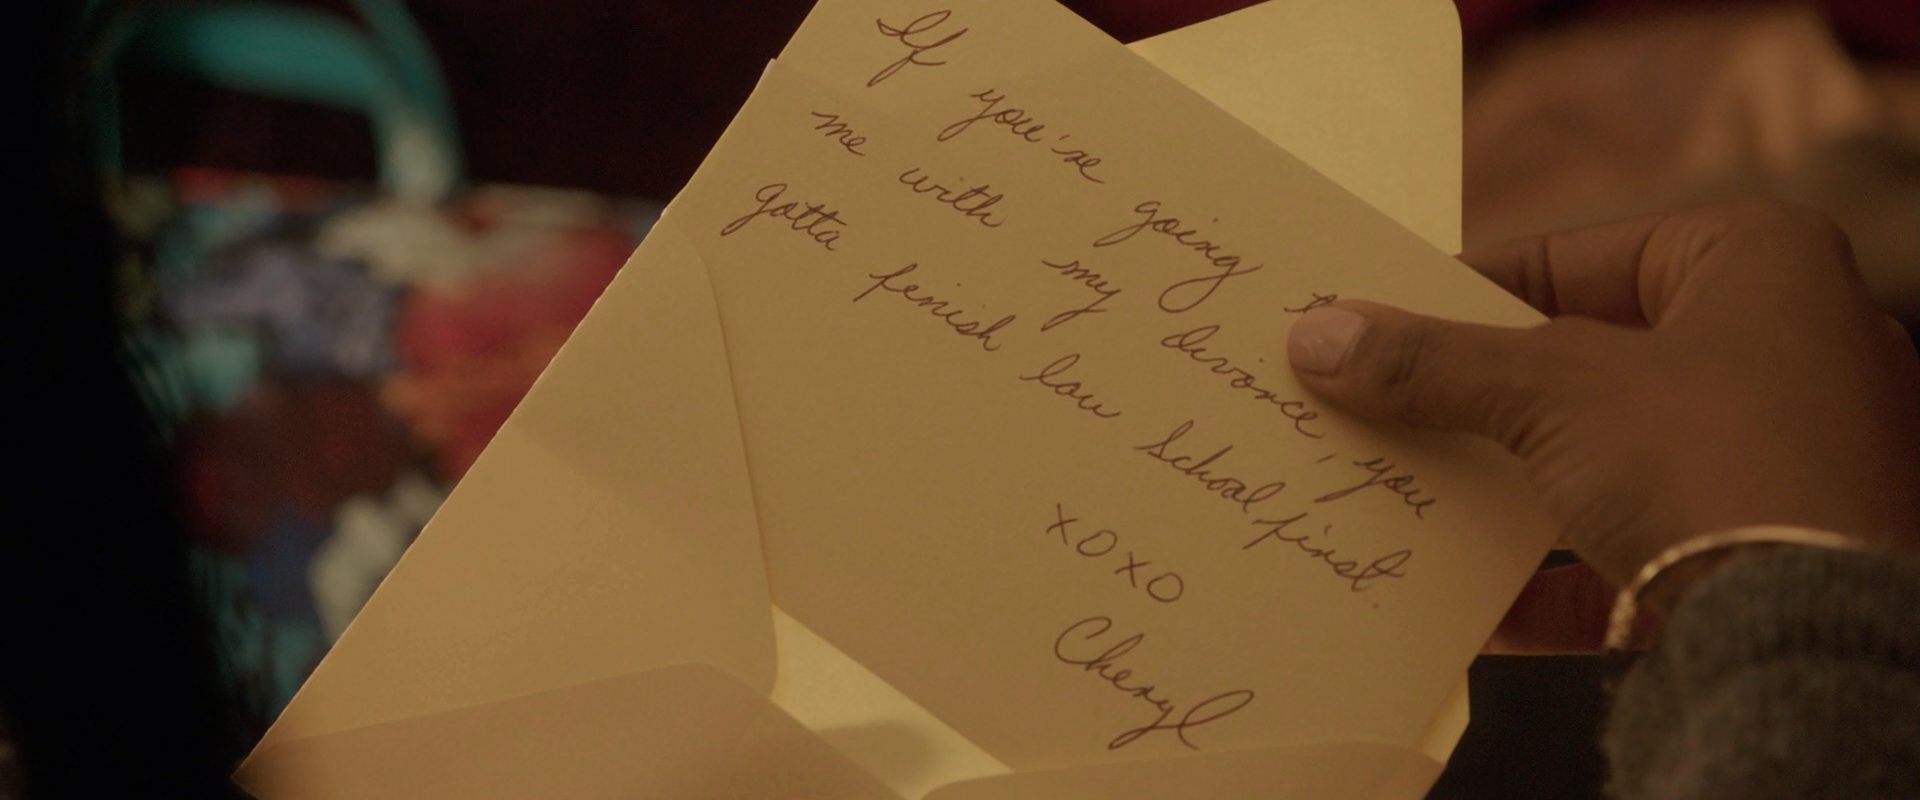 If you're going
me with my divorce, you
gotta finish law School first.
XOXO
Cheryl